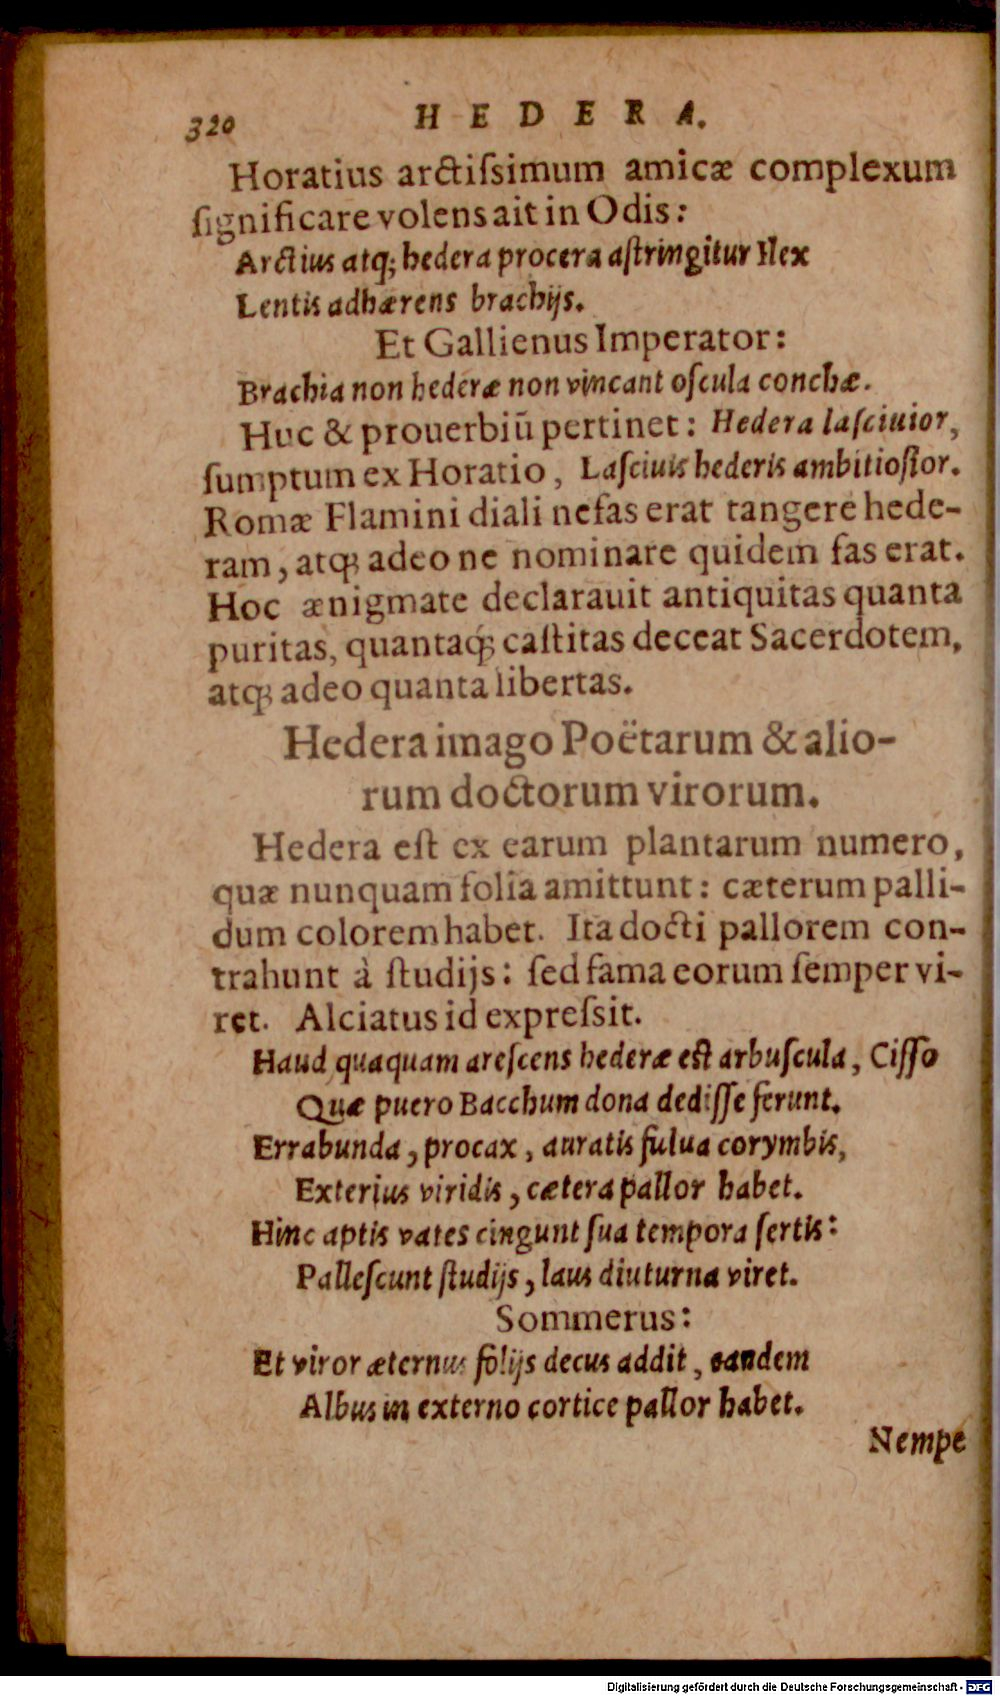 320 HEDERA.
Horatius arctiſsimum amicæ complexum
ſignificare volens ait in Odis:
Arctius atq; hedera procera aſtringitur Ilex
Lentis adhærens brachijs.
Et Gallienus Imperator:
Brachia non hederæ non vincant oſcula conchæ.
Huc & prouerbiũ pertinet: Hedera laſciuior,
ſumptum ex Horatio, Laſciuis hederis ambitioſior.
Romæ Flamini diali nefas erat tangere hede-
ram, atq; adeo ne nominare quidem fas erat.
Hoc ænigmate declarauit antiquitas quanta
puritas, quantaq́; caſtitas deceat Sacerdotem,
atq; adeo quanta libertas.
Hedera imago Poëtarum & alio-
rum doctorum virorum.
Hedera eſt ex earum plantarum numero,
quæ nunquam folia amittunt: cæterum palli-
dum colorem habet. Ita docti pallorem con-
trahunt à ſtudijs: ſed fama eorum ſemper vi-
ret. Alciatus id expreſsit.
Haud quaquam areſcens hederæ eſt arbuſcula, Ciſſo
Quæ puero Bacchum dona dediſſe ferunt.
Errabunda, procax, auratis fulua corymbis,
Exterius viridis, cætera pallor habet.
Hinc aptis vates cingunt ſua tempora ſertis:
Palleſcunt ſtudijs, laus diuturna viret.
Sommerus:
Et viror æternus folijs decus addit, eandem
Albus in externo cortice pallor habet.
Nempe
Digitalisierung gefördert durch die Deutsche Forschungsgemeinschaft - DFG